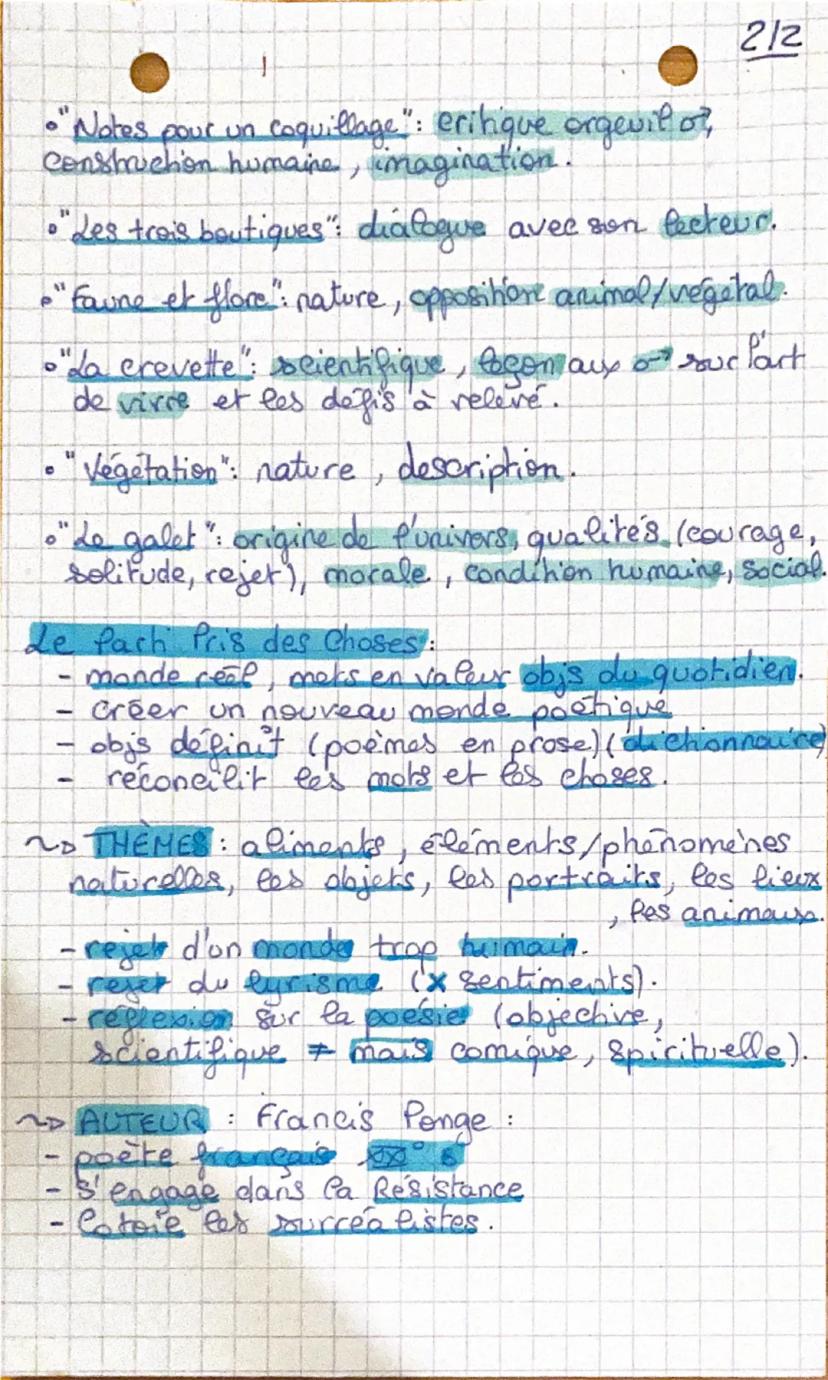 2/2
• "Notes pour un coquillage": critique orgeuil ♂,
construction humaine, imagination.
• "Les trois boutiques": dialogue avec son lecteur.
• "Faune et flore": nature, opposition animal/végétal.
• "La crevette": scientifique, leçon aux ♂ sur l'art
de vivre et les défis à relevé.
• "Végétation": nature, description.
• "Le galet": origine de l'univers, qualités (courage,
solitude, rejet), morale, condition humaine, social.
Le Parti Pris des Choses:
- monde réel, mets en valeur objs du quotidien.
- créer un nouveau monde poétique
- objs définit (poèmes en prose) (dictionnaire)
- réconcilit les mots et les choses.
~> THÈMES: aliments, éléments/phénomènes
naturelles, les objets, les portraits, les lieux
, les animaux.
- rejet d'un monde trop humain.
- rejet du lyrisme (x sentiments).
- réflexion sur la poésie (objective,
scientifique ≠ mais comique, spirituelle).
~> AUTEUR : Francis Ponge :
- poète français XX° s
- s'engage dans la Résistance
- Cotoie les surréalistes.